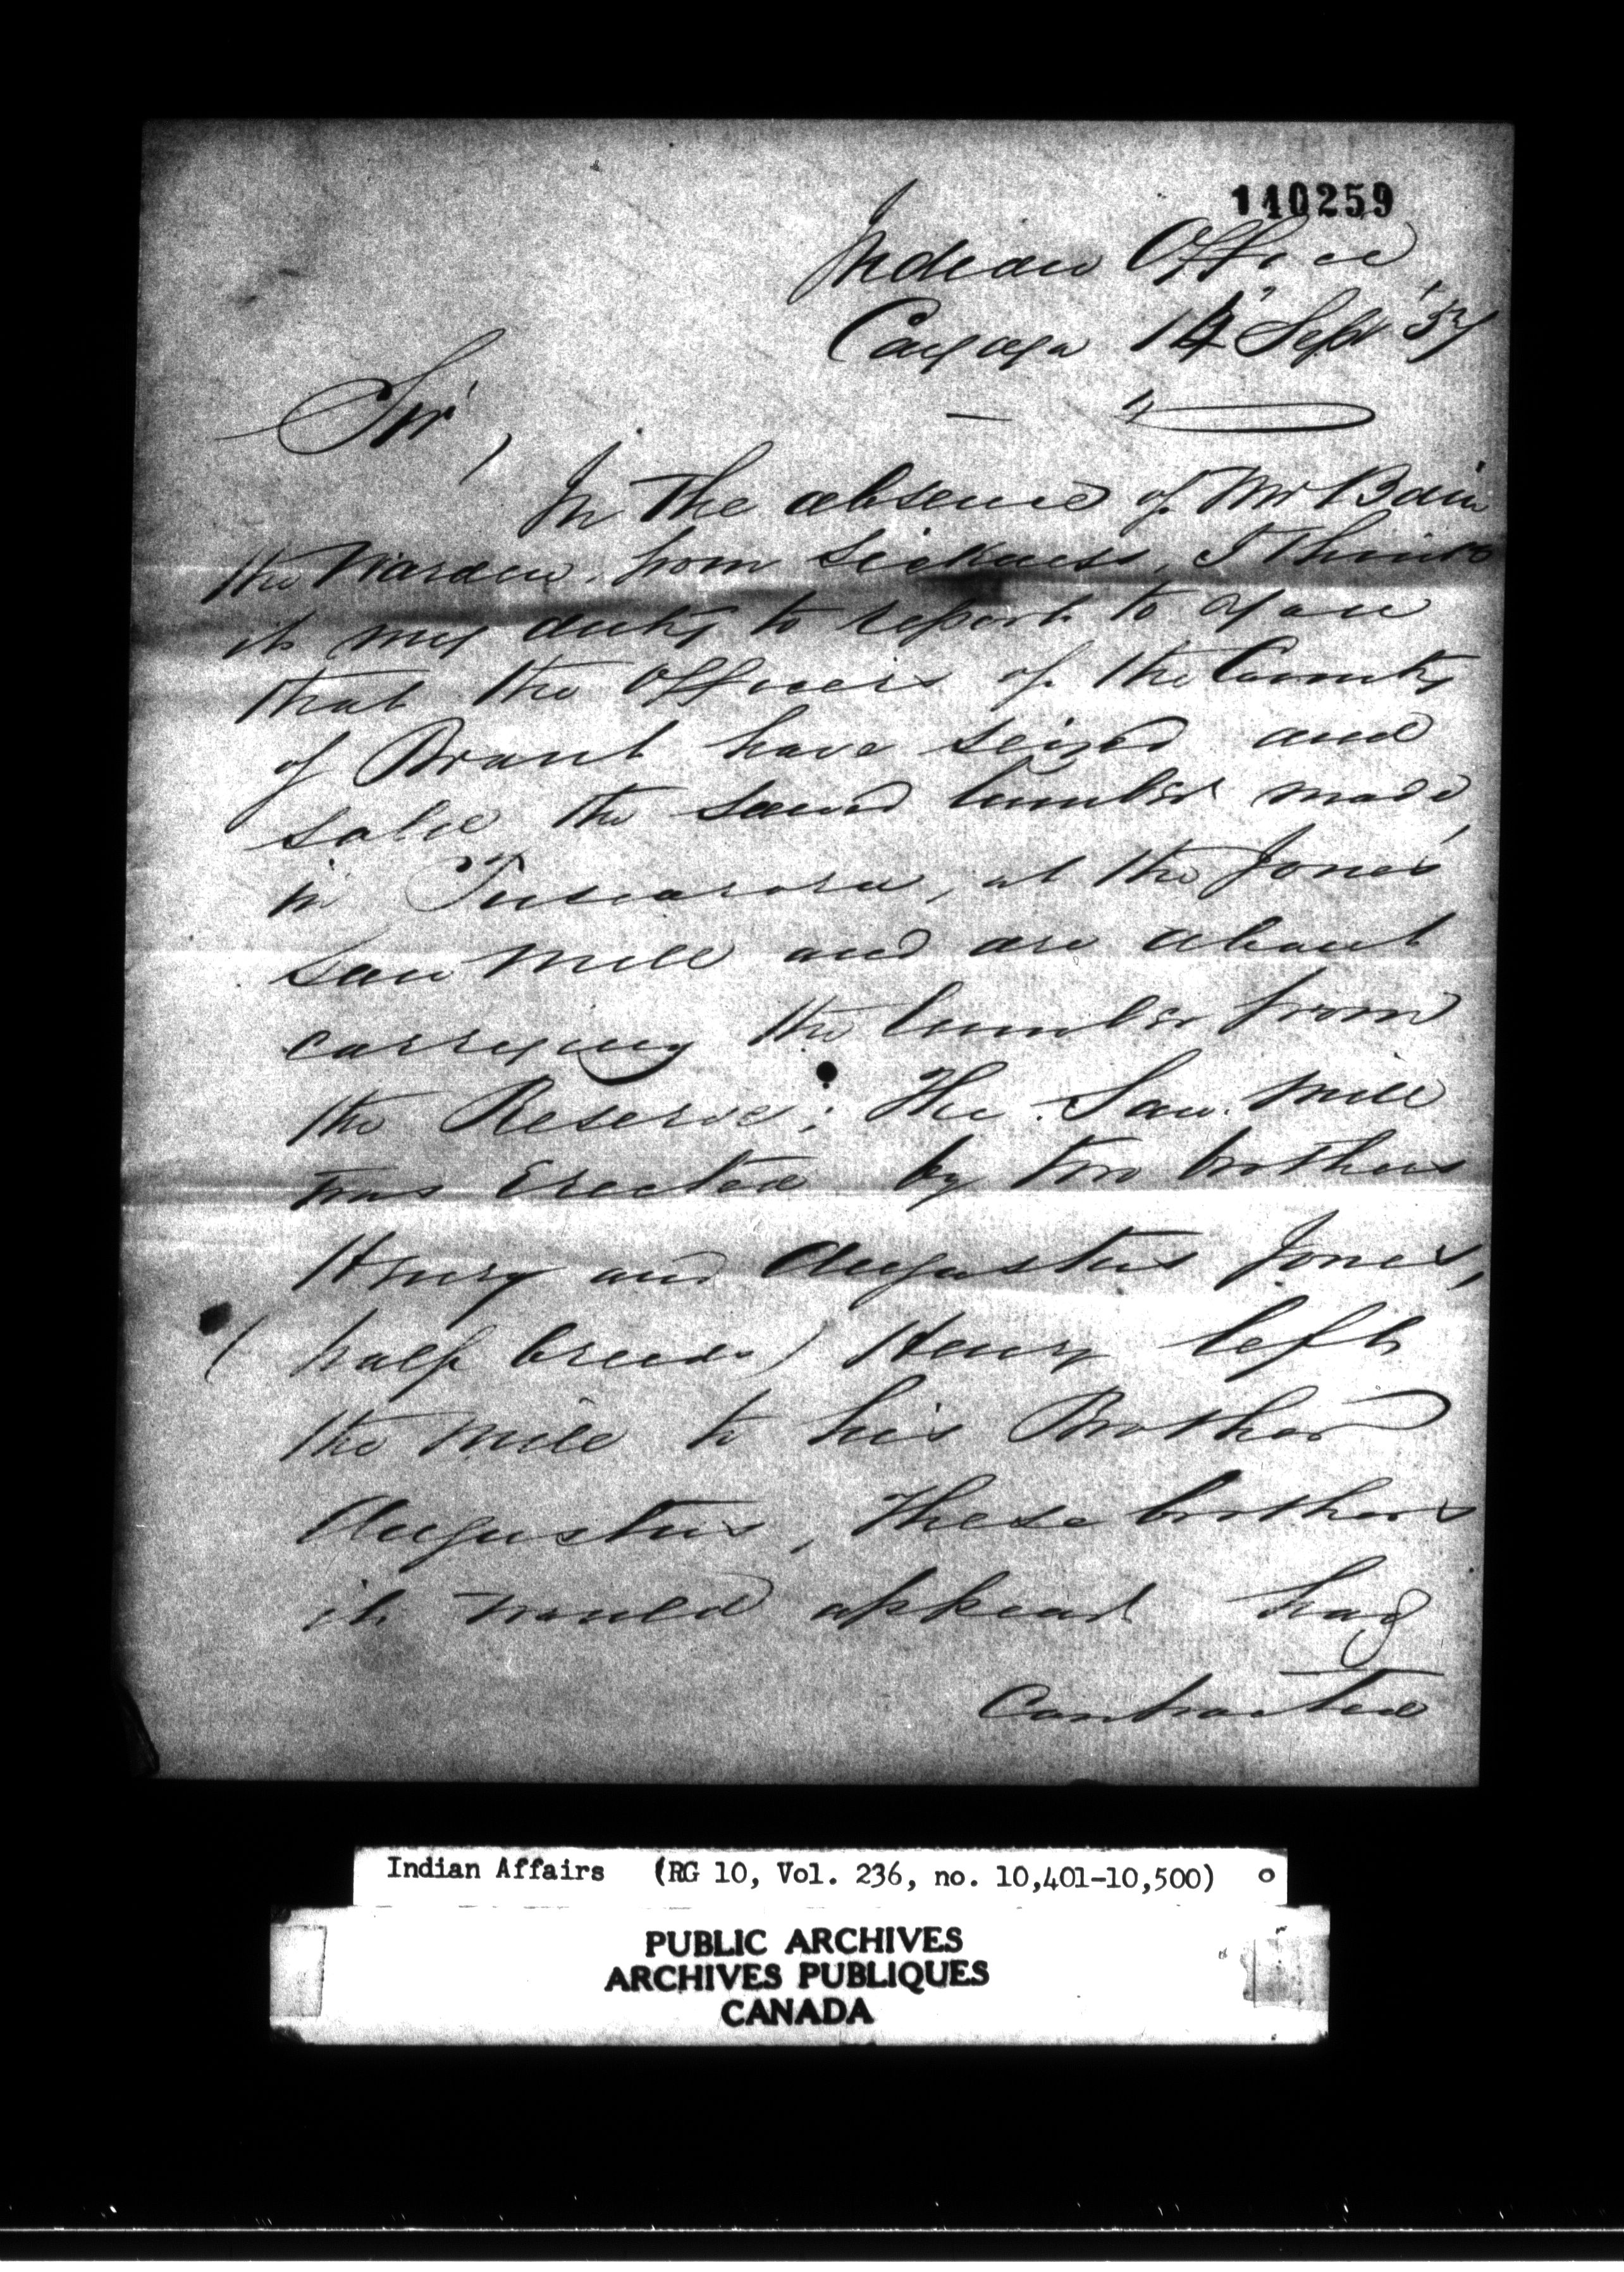 140259
Indian Office
Cayuga 14 Sept '57
Sir,
In the absence of Mr Bain
the Warden, from sickness, I think
it my duty to report to you
that the Officers of the County
of Brant have seized and
sold the sawed lumber made
in Tuscarora, at the Jones'
Saw Mill and are about
carrying the lumber from
the Reserve; The Saw Mill
was Erected by two brothers
Henry and Augustus Jones,
(half breeds) Henry left
the mill to his Brother
Augustus, these brothers
it would appear had
Contracted
Indian Affairs (RG 10, Vol. 236, no. 10,401-10,500)
PUBLIC ARCHIVES
ARCHIVES PUBLIQUES
CANADA